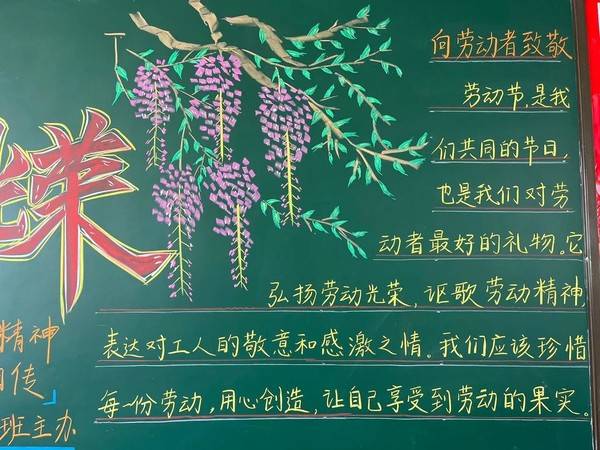 光荣
向劳动者致敬
劳动节,是我
们共同的节日,
也是我们对劳
动者最好的礼物。它
弘扬劳动光荣,讴歌劳动精神,
表达对工人的敬意和感激之情。我们应该珍惜
每一份劳动,用心创造,让自己享受到劳动的果实。
精神
传」
班主办